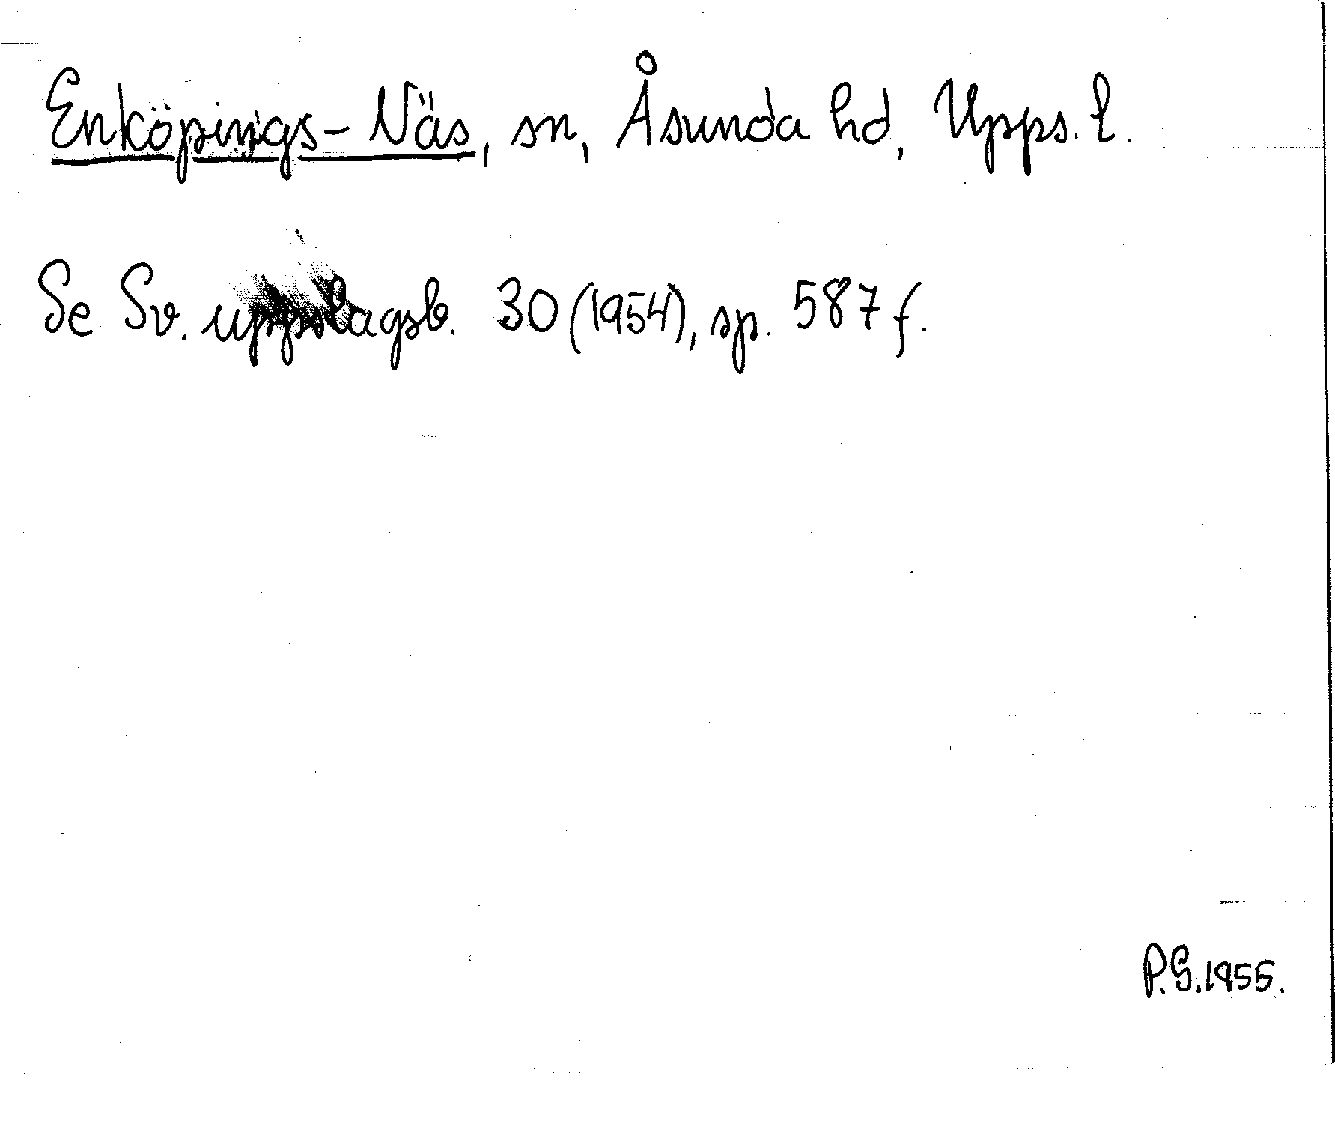 Enköpings-Näs, sn, Åsunda hd, Upps. l.
Se Sv. uppslagsb. 30 (1954), sp. 587 f.
P.G. 1955.